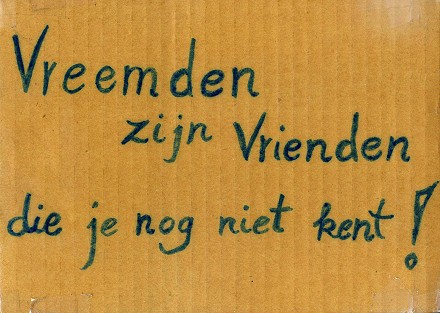 Vreemden
zijn Vrienden
die je nog niet kent!